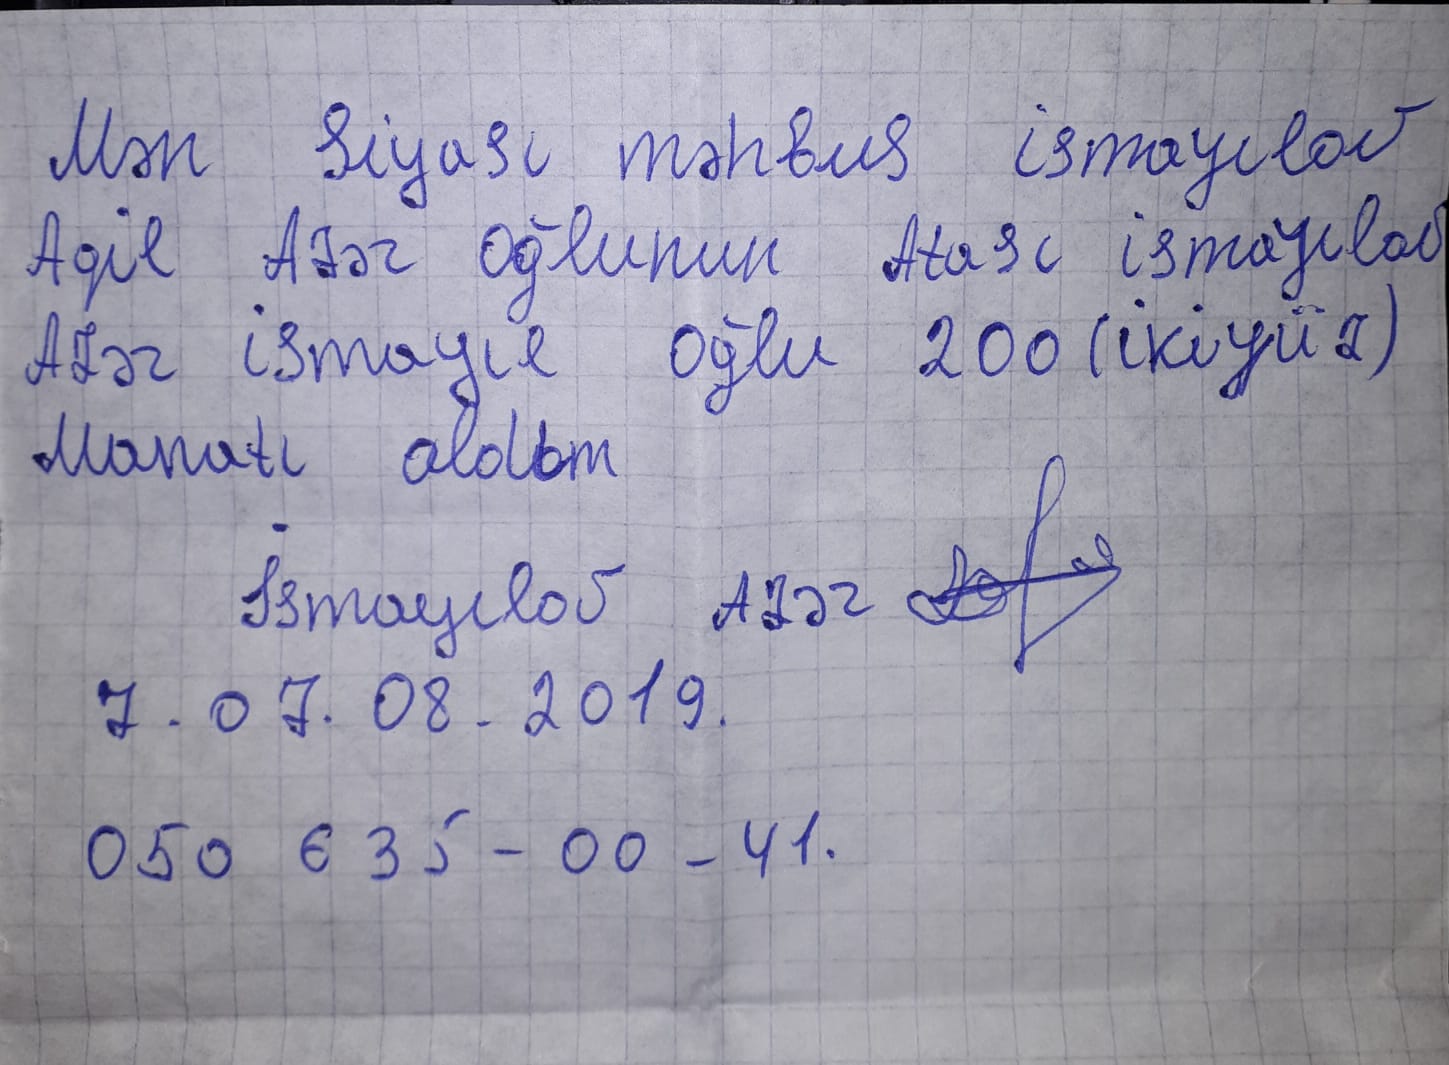 Mən Siyası məhbus ismayılov
Aqil Azər oğlunun Atası ismayılov
Azər ismayıl oğlu 200 (ikiyüz)
Manatı aldım
İsmayılov Azər
7. 07. 08. 2019.
050 635-00-41.